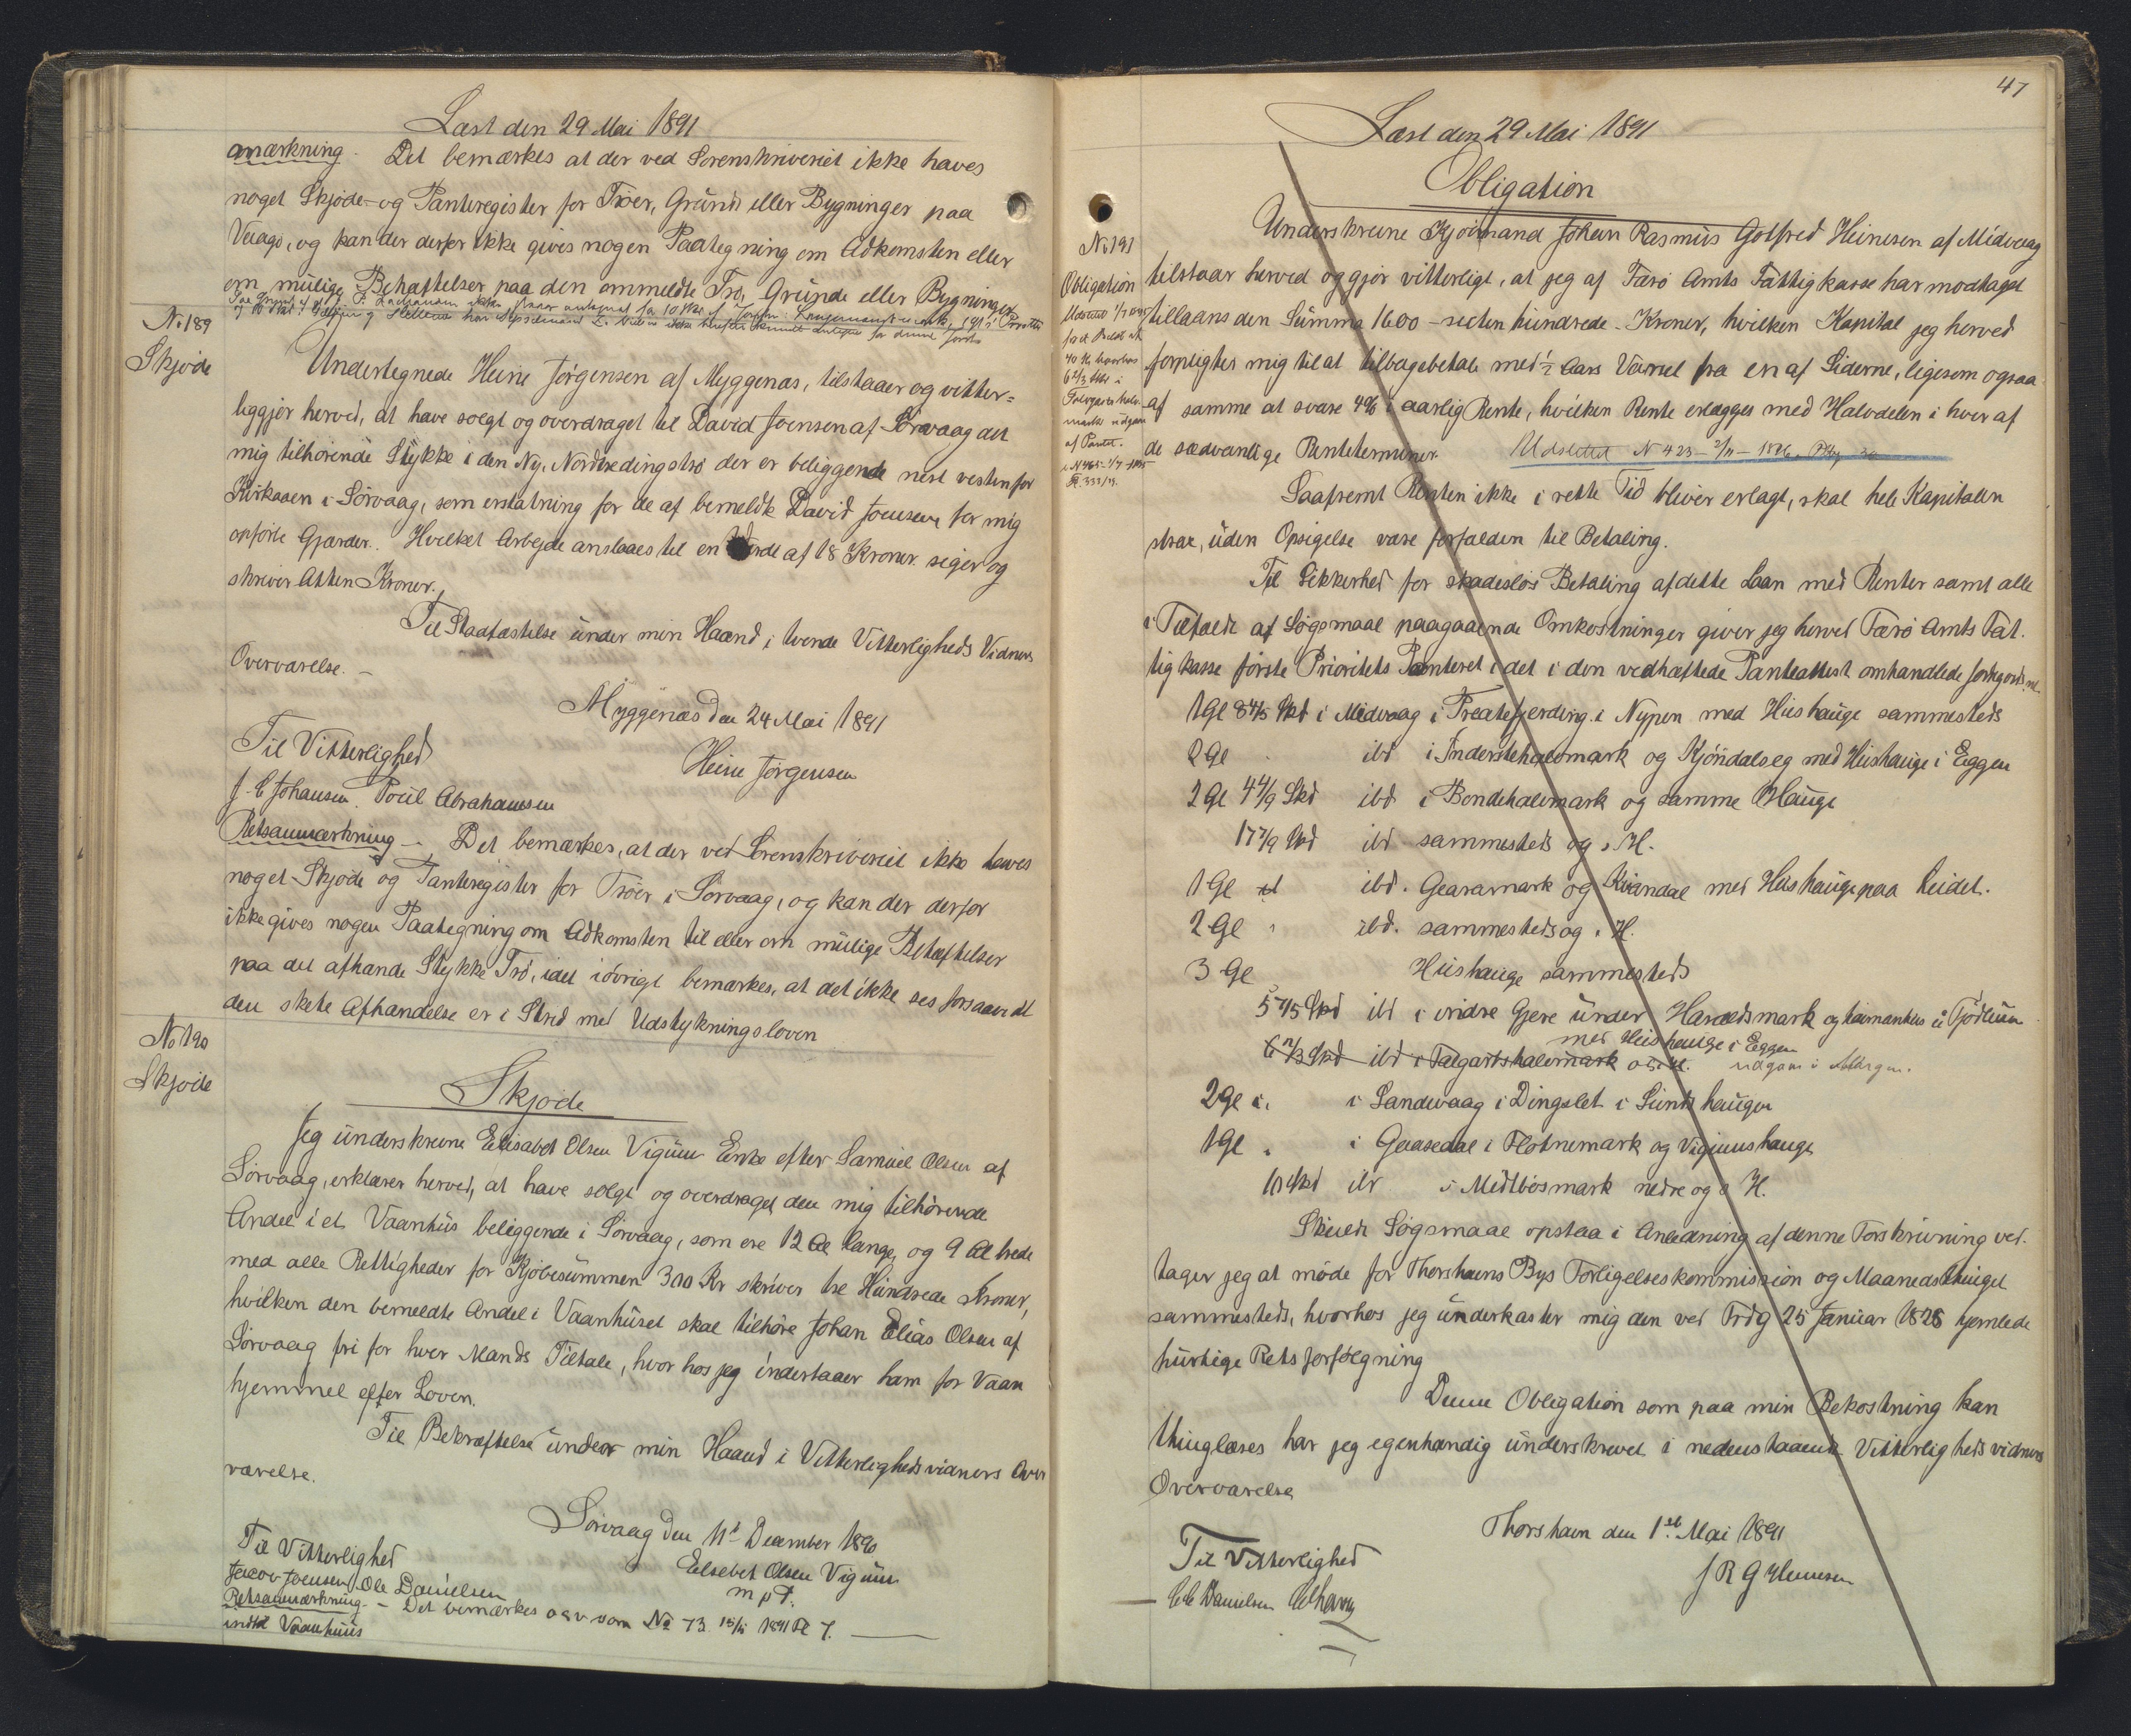 Læst den 29 Mai 1891
anærkning. Det bemærkes at der ved Sorenskriveriet ikke haves
noget Skjøde- og Panteregister for Trøer, Grund eller Bygninger paa
Vaagø, og kan der derfor ikke gives nogen Paategning om Adkomsten eller
om mulige Behæftelser paa den ommeldte Trø, Grunde eller Bygninger
No 189
Skjøde
Undertegnede Heine Jørgensen af Myggenæs, tilstaaer og vitter-
liggjør herved, at have solgt og overdraget til David Joensen af Sørvaag det
mig tilhørende Stykke i den Ny. Nordredingstrø der er beliggende nest vesten for
Kirkaaen i Sørvaag, som erstatning for de af bemeldte David Joensen for mig
opførte Gjærder. Hvilket Arbejde anslaaes til en Værdi af 18 Kroner. siger og
skriver Atten Kroner.
Til Stadfæstelse under min Haand i tvende Vitterligheds Vidners
Overværelse. -
Myggenæs den 24 Mai 1891
Heine Jørgensen
Til Vitterlighed
J. E Johansen. Poul Abrahamsen
Retsanmærkning - Det bemærkes, at der ved Sorenskriveriet ikke haves
noget Skjøde og Panteregister for Trøer i Sørvaag, og kan der derfor
ikke gives nogen Paategning om Adkomsten til eller om mulige Behæftelser
paa det afhænde Stykke Trø, idet iøvrigt bemærkes, at det ikke ses forsaavidt
den skete Afhændelse er i Strid med Udstykningsloven
No 190
Skjøde
Skjøde
Jeg underskrevne Elisabet Olsen Vigum Enke efter Samuel Olsen af
Sørvaag, erklærer herved, at have solgt og overdraget den mig tilhørende
Andel i et Vaanhus beliggende i Sørvaag, som ere 12 Al lange, og 9 Al brede
med alle Rettigheder for Kjøbesummen 300 Kr skriver tre Hundrede Kroner,
hvilken den bemeldte Andel i Vaanhuset skal tilhøre Johan Elias Olsen af
Sørvaag fri for hver Mands Tiltale, hvorhos jeg indestaaer ham for Vaan
hjemmel efter Loven.
Til Bekræftelse under min Haand i Vitterlighedsvidners Over
værelse.
Sørvaag den 11t December 1890
Elsebet Olsen Vigum
m p P.
Til Vitterlighed
Jacob Joensen Ole Danielsen
Retsanmærkning - Det bemærkes osv som No 73 15/5 1891 R 7.
indtil Vaanhuus
47
Læst den 29 Mai 1891
Obligation
No 191
Obligation
Udslettet
af Pantet.
Underskrevne Kjøbmand Johan Rasmus Gotfred Heinesen af Midvaag
tilstaar herved og gjør vitterligt, at jeg af Færø Amts Fattigkasse har modtaget
tillaans den Summa 1600 - sexten hundrede - Kroner, hvilken Kapital jeg herved
forpligter mig til at tilbagebetale med ½ Aars Varsel fra en af Siderne, ligesom ogsaa
af samme at svare 4% i aarlig Rente, hvilken Rente erlægges med Halvdelen i hver af
de sædvanlige Renteterminer.
Udslettet N 423
Saafremt Renten ikke i rette Tid bliver erlagt, skal hele Kapitalen
strax, uden Opsigelse være forfalden til Betaling.
Til Sikkerhed for skadesløs Betaling af dette Laan med Renter samt alle
i Tilfælde af Søgsmaal paagaaende Omkostninger giver jeg herved Færø Amts Fat-
tigkasse første Prioritets Panteret i det i den vedhæftede Panteattest omhandlede Jordegods nl.
1 Gl 8 4/5 Skd i Midvaag i Treatefjerding i Nypen med Hushauge sammesteds
2 Gl ibd i Inderstehalvmark og Kjøndalseg med Hushauge i Eggen
2 Gl 4 4/9 Skd ibd i Bondehalvmark og samme Hauge
17 7/9 Skd ibd sammesteds og s. H.
1 Gl ibd. Gearamark og Kvandal med Hushauge paa Heidet.
2 Gl ibd. sammesteds og s. H.
3 Gl Hushauge sammesteds
5 7/15 Skd ibd i vidre Gjere under Haraldsmark og
med Huushauge i Eggen
6 2/3 Skd ibd i Salgartshalvmark og s. H.
udgaar i
2 Gl i Sandevaag i Dingslet i Sunds haugen
1 Gl i Gaasedal i Flotnemark og Vigumshauge
10 Skd ibd i Midtbøsmark nedre og s H.
Skulde Søgsmaal opstaa i Anledning af denne Forskrivning ved-
tager jeg at møde for Thorshavns Bys Forligelseskommission og Maanedsthinget
sammesteds, hvorhos jeg underkaster mig den ved Frdg 25 Januar 1828 hjemlede
hurtige Retsforfølgning
Denne Obligation som paa min Bekostning kan
thinglæses har jeg egenhændig underskrevet i nedenstaaende Vitterlighedsvidners
Overværelse
Thorshavn den 1st Mai 1891
J R G Heinesen
Til Vitterlighed
C C Danielsen